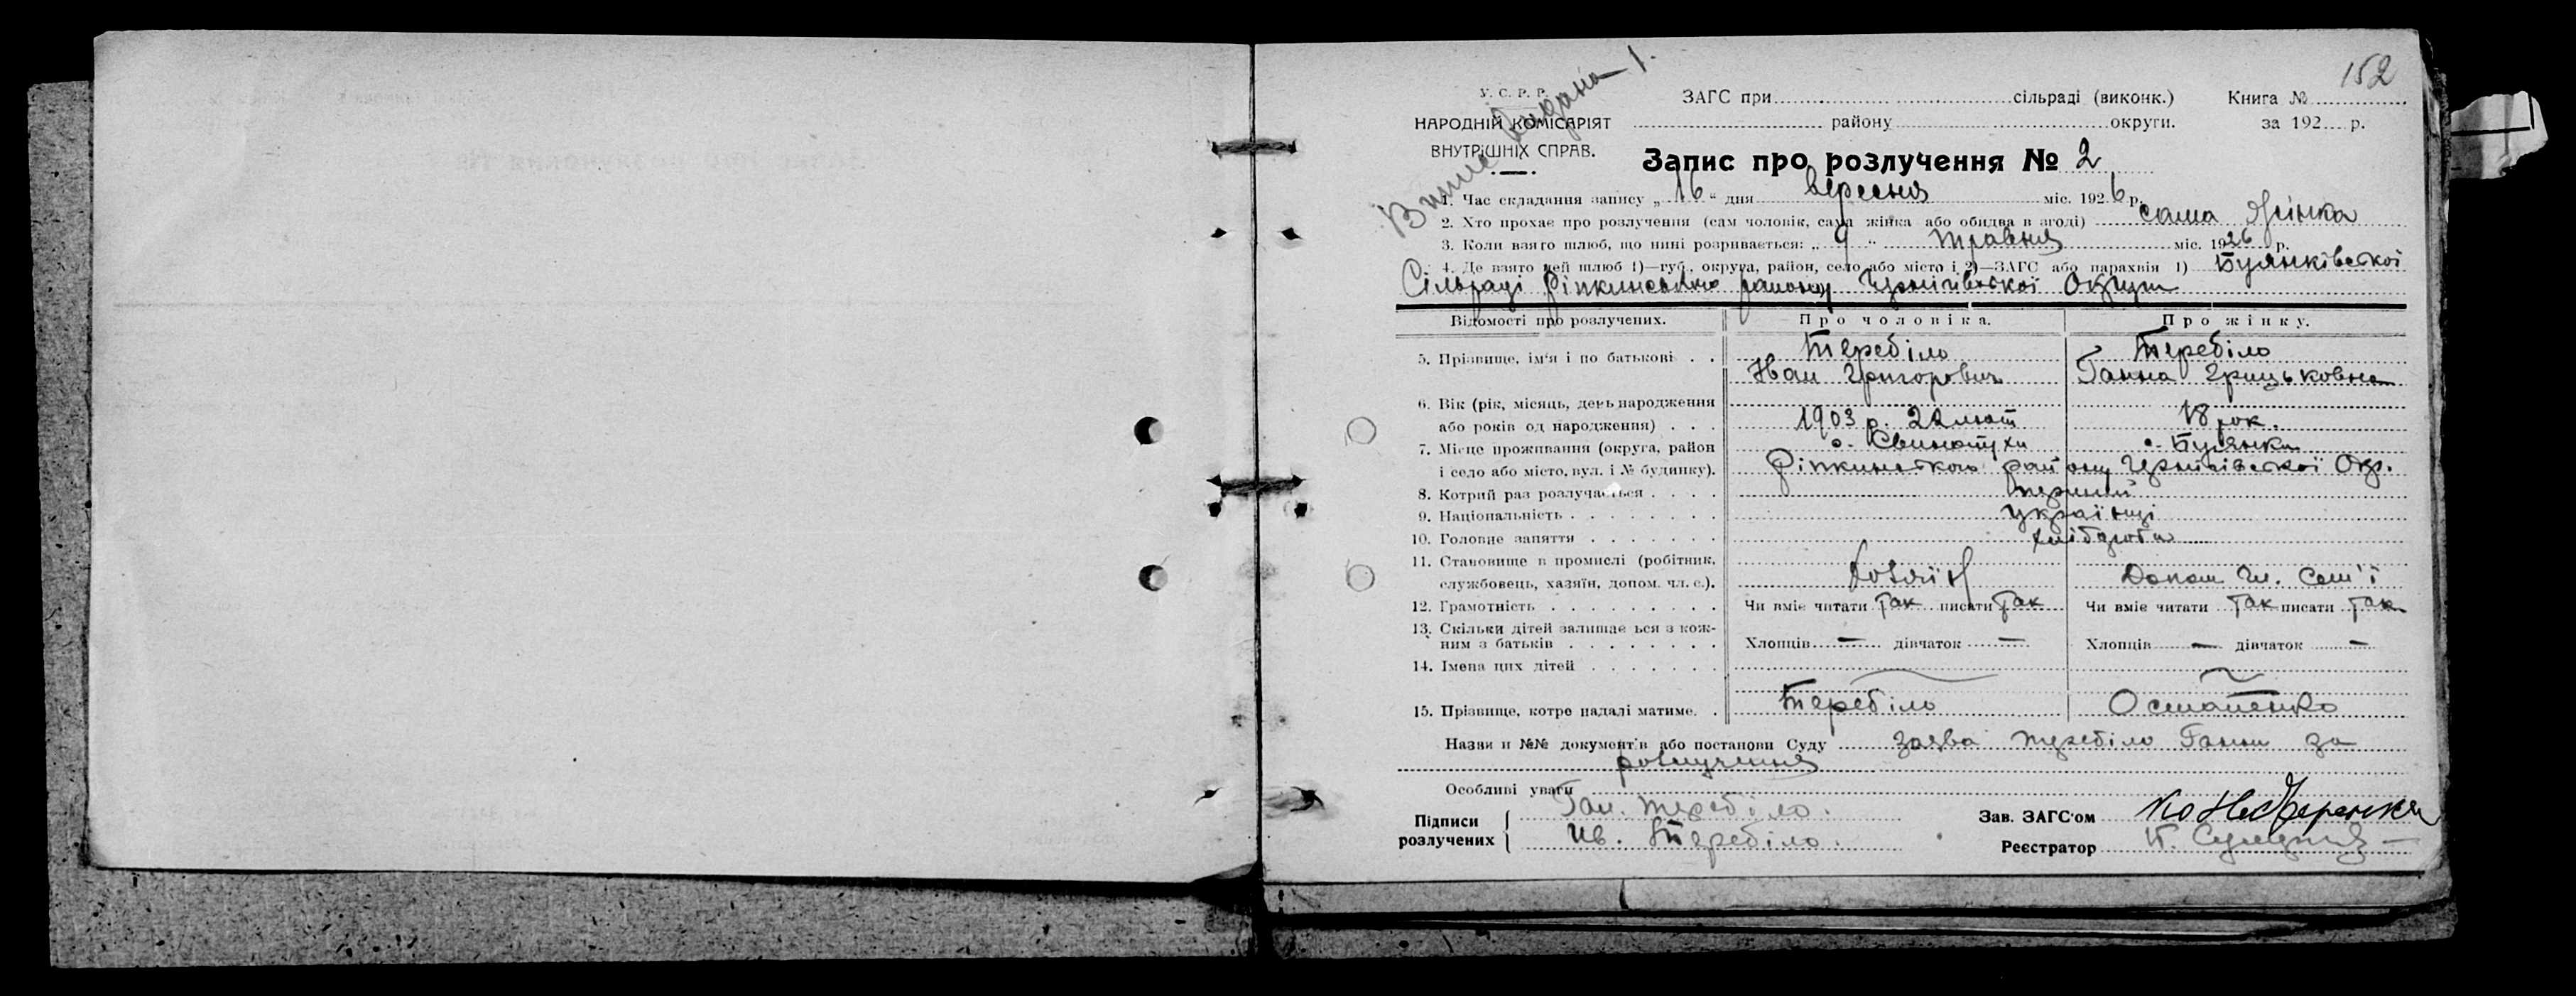 152
Виписс видана 1.
У. С. Р. Р.
НАРОДНІЙ КОМІСАРІЯТ
ВНУТРІШНІХ СПРАВ.
ЗАГС при сільраді (виконк.) Книга №
району округи. за 192 р.
Запис про розлучення № 2
1. Час складання запису „ 16 “ дня вересня міс. 1926 р.
2. Хто прохає про розлучення (сам чоловік, сама жінка або обидва в згоді) сама жінка
3. Коли взято шлюб, що нині розривається: „ 9 “ травня міс. 1926 р.
4. Де взято цей шлюб 1)—губ., округа, район, село або місто і 2)—ЗАГС або парахвія 1) Буянківської
Сільраді Ріпкинського району Чернігівської Округи
Відомості про розлучених. Про чоловіка. Про жінку.
5. Прізвище, ім'я і по батькові . . Теребіло Теребіло
Іван Григорович Ганна Грицьковна
6. Вік (рік, місяць, день народження
або років од народження) . . . 1903 р. 22 лют 18 рок.
7. Місце проживання (округа, район с. Свинопухи с. Буянки
і село або місто, вул. і № будинку). Ріпкинського району Чернігівської Окр.
8. Котрий раз розлучається . . . . перший
9. Національність . . . . . . . . українці
10. Головне заняття . . . . . . . хлібороби
11. Становище в промислі (робітник,
службовець, хазяїн, допом. чл. с.). Хозяїн Допом чл. сем'ї
12. Грамотність . . . . . . . . . Чи вміє читати так писати так Чи вміє читати так писати так
13. Скільки дітей залишає ься з кож-
ним з батьків . . . . . . . . Хлопців — дівчаток — Хлопців — дівчаток —
14. Імена цих дітей . . . . . . .
15. Прізвище, котре надалі матиме. . Теребіло Остапенко
Назви и №№ документів або постанови Суду заява Теребіло Ганни за
розлучення
Особливі уваги
Підписи
розлучених
Ган. Теребіло.
Ив. Теребіло.
Зав. ЗАГС'ом
Реєстратор